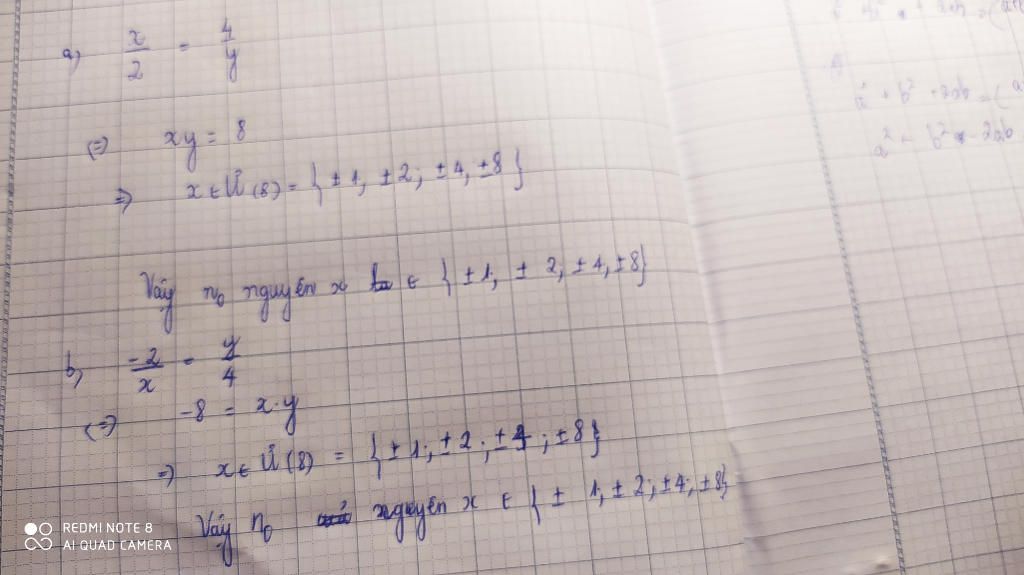 a, x/2 = 4/y
(=) xy = 8
=) x ∈ Ư(8) = { ±1, ±2; ±4, ±8 }
Vậy n₀ nguyên x ∈ { ±1; ± 2; ±4, ±8}
b, -2/x = y/4
(=) -8 = x.y
=) x ∈ Ư(8) = { ±1; ±2; ±4; ±8}
Vậy n₀ nguyên x ∈ { ± 1, ± 2; ±4; ±8}
a² + b² + 2ab = (a
a² + b² - 2ab
REDMI NOTE 8
AI QUAD CAMERA